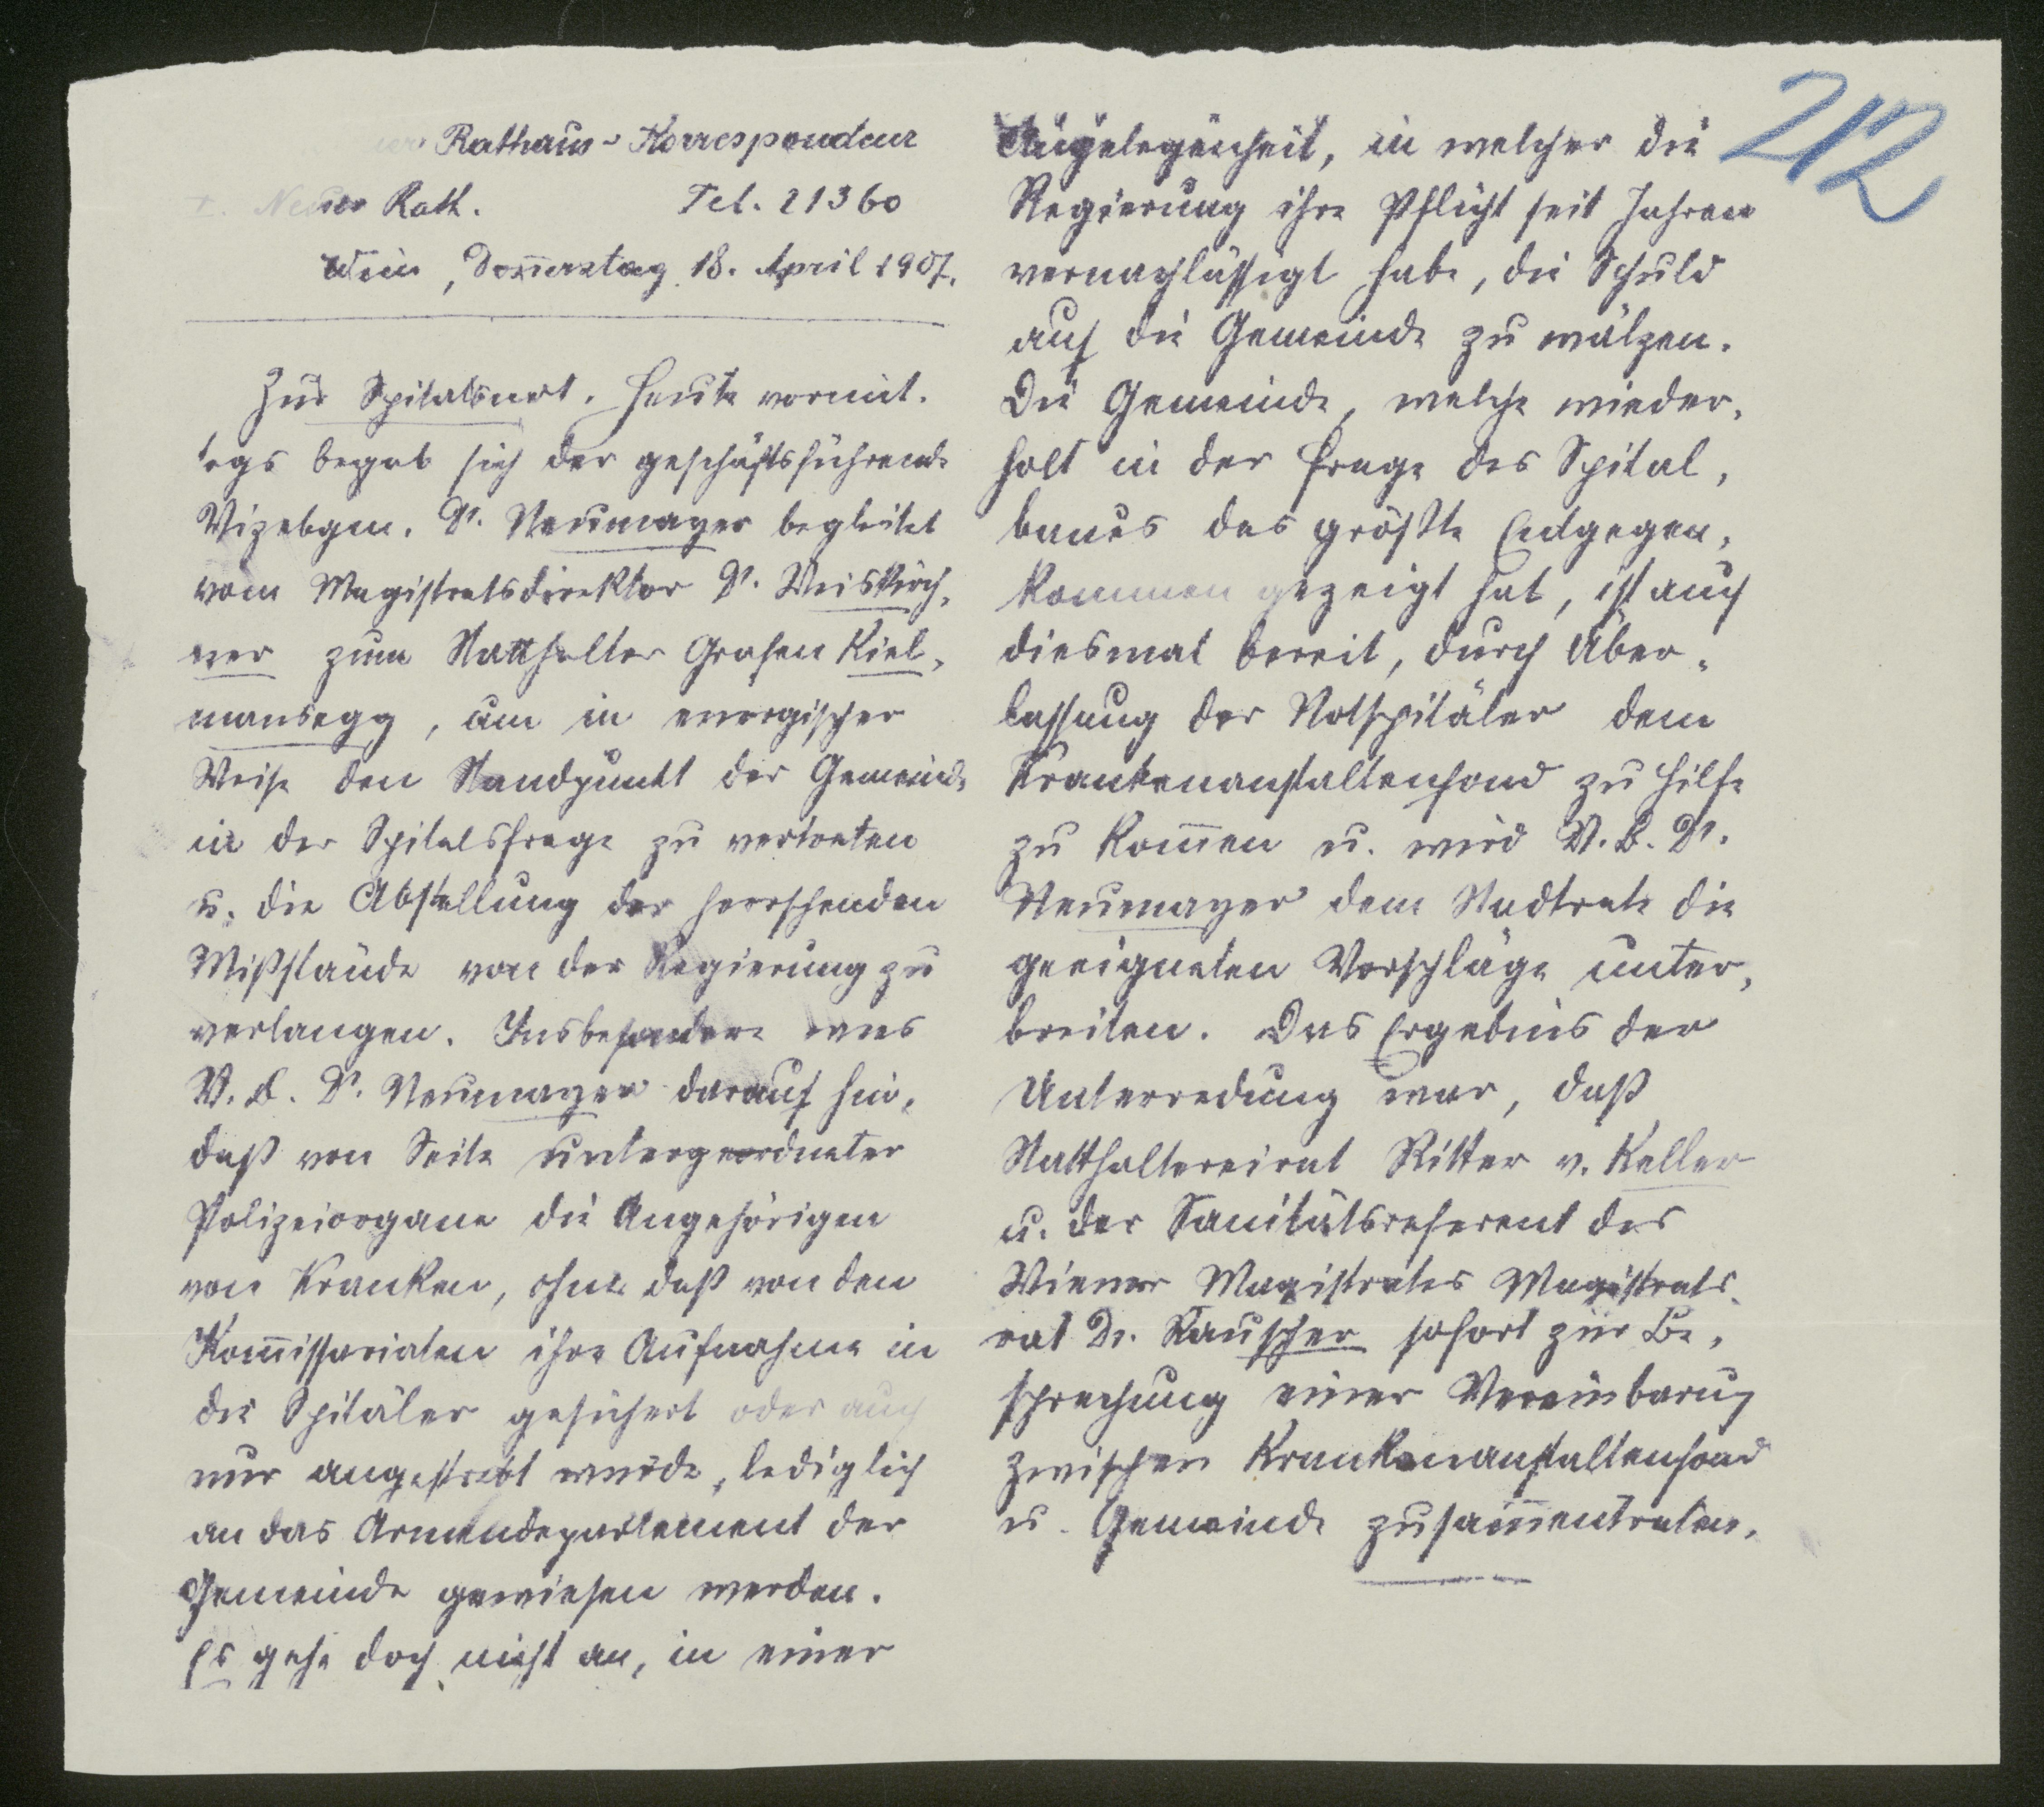 Rathaus-Korrespondenz
I. Neues Rath. Tel. 21360
Wien, Donnerstag 18. April 1907.
Zur Spitalsnot. Heute vormit-
tags begab sich der geschäftsführende
Vizebgm. Dr. Neumayer begleitet
vom Magistratsdirektor Dr. Weiskirch-
ner zum Statthalter Grafen Kiel-
mansegg, um in energischer
Weise den Standpunkt der Gemeinde
in der Spitalsfrage zu vertreten
u. die Abstellung der herrschenden
Mißstände von der Regierung zu
verlangen. Insbesondere wies
V. B. Dr. Neumayer darauf hin,
daß von Seite untergeordneter
Polizeiorgane die Angehörigen
von Kranken, ohne daß von den
Kom̅issariaten ihre Aufnahme in
die Spitäler gesichert oder auch
nur angestrebt würde, lediglich
an das Armendepartement der
Gemeinde gewiesen werden.
Es gehe doch nicht an, in einer
212
Angelegenheit, in welcher die
Regierung ihre Pflicht seit Jahren
vernachlässigt habe, die Schuld
auf die Gemeinde zu wälzen.
Die Gemeinde, welche wieder-
holt in der Frage des Spital-
baues das größte Entgegen-
kommen gezeigt hat, ist auch
diesmal bereit, durch Über-
lassung der Notspitäler dem
Krankenanstaltenfond zu Hilfe
zu kom̅en u. wird V. B. Dr.
Neumayer dem Stadtrate die
geeigneten Vorschläge unter-
breiten. Das Ergebnis der
Unterredung war, daß
Statthaltereirat Ritter v. Keller
u. der Sanitätsreferent des
Wiener Magistrates Magistrats-
rat Dr. Rauscher sofort zur Be-
sprechung einer Vereinbarung
zwischen Krankenanstaltenfond
u. Gemeinde zusam̅entreten.